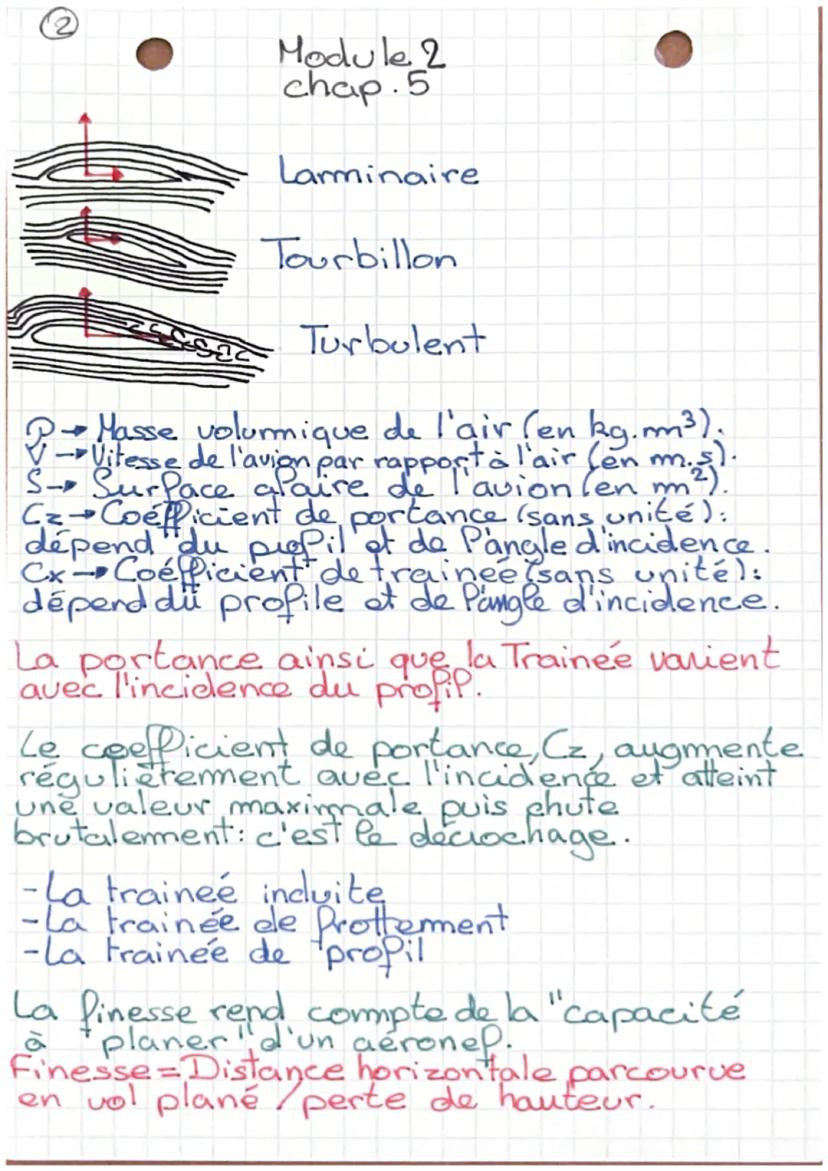 2
Module 2
chap. 5
Larminaire
Tourbillon
Turbulent
ρ → Masse volumique de l'air (en kg.m³).
V → Vitesse de l'avion par rapport à l'air (en m.s).
S → Surface alaire de l'avion (en m²).
Cz → Coéfficient de portance (sans unité):
dépend du profil et de l'angle d'incidence.
Cx → Coéfficient de traineé (sans unité):
dépend du profile et de l'angle d'incidence.
La portance ainsi que la Trainée varient
avec l'incidence du profil.
Le coefficient de portance, Cz, augmente
régulièrement avec l'incidence et atteint
une valeur maximale puis chute
brutalement: c'est le décrochage.
- La traineé induite
- La trainée de frottement
- La trainée de profil
La finesse rend compte de la "capacité
à planer" d'un aéronef.
Finesse = Distance horizontale parcourue
en vol plané / perte de hauteur.